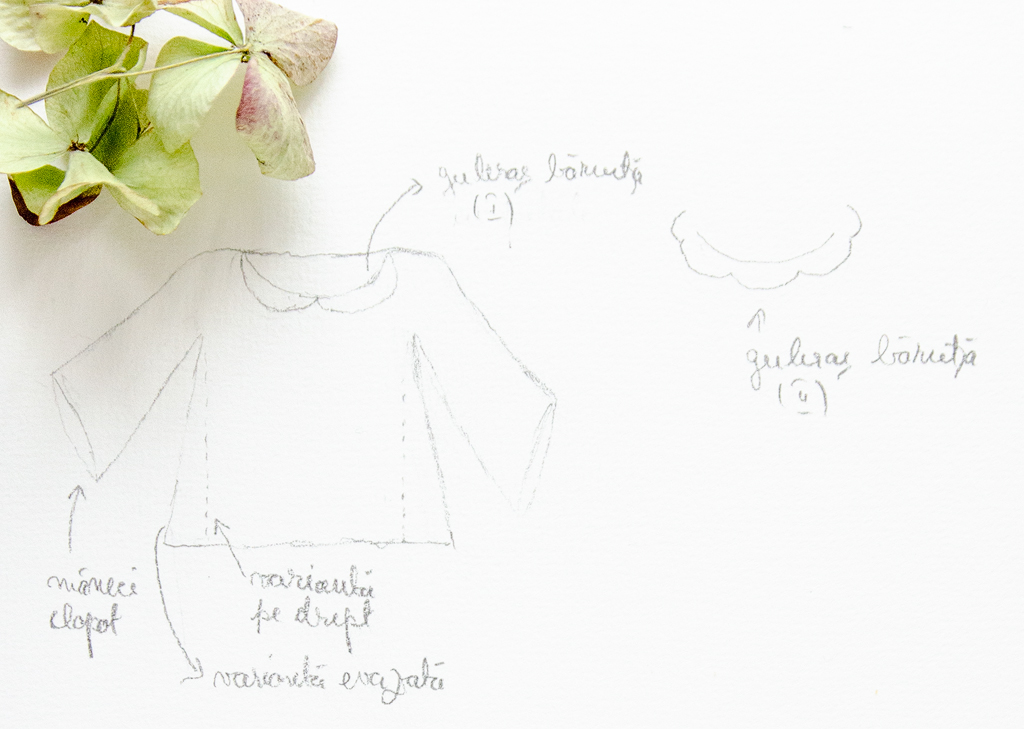 guleraș băruță
(I)
guleraș băruță
(II)
mâneci
clopot
variantă
pe drept
variantă evazată